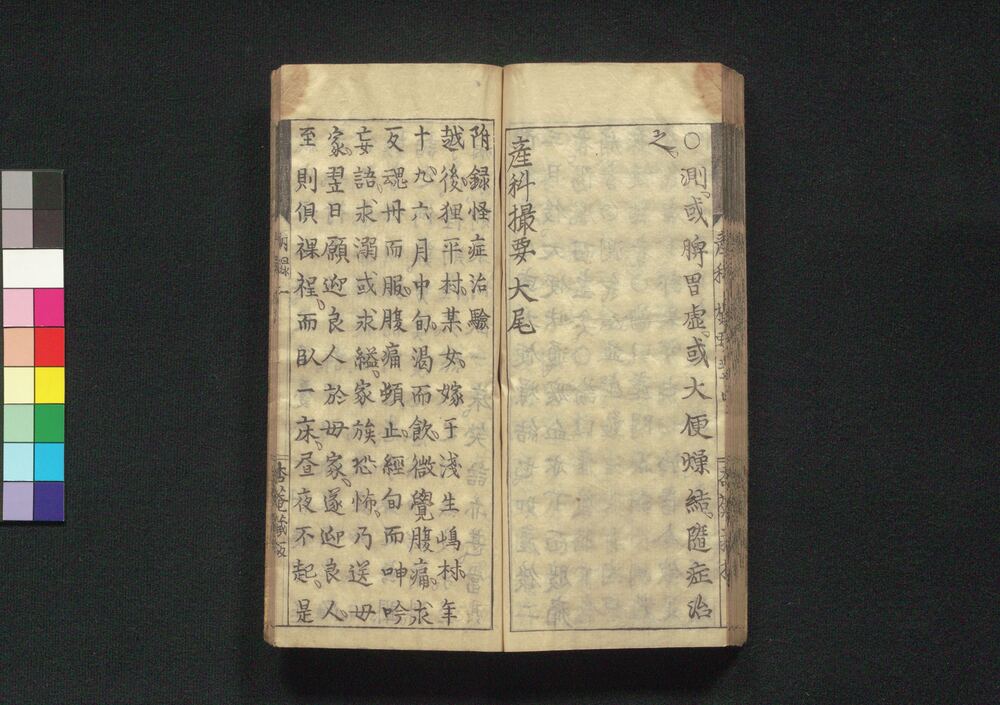 ○測或脾胃虚或大便燥結隨症治
之
產科撮要大尾
附録怪症治驗
越後狸平村某女嫁于淺生嶋村年
十九六月中旬渴而飲微覺腹痛求
反魂丹而服腹痛頓止經旬而呻吟
妄語求溺或求縊家族恐怖乃送毋
家翌日願迎良人於毋家遂迎良人
至則俱裸裎而臥一床昼夜不起是
附録 一
杏菴藏板